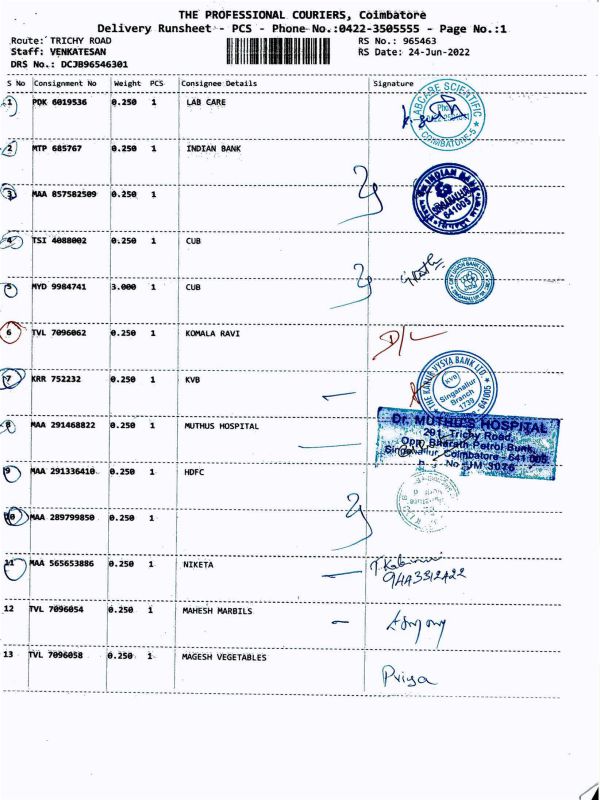 THE PROFESSIONAL COURIERS, Coimbatore
Delivery Runsheet - PCS - Phone No.:0422-3505555 - Page No.:1
Route: TRICHY ROAD RS No.: 965463
Staff: VENKATESAN RS Date: 24-Jun-2022
DRS No.: DCJB96546301
S No Consignment No Weight PCS Consignee Details Signature
1 PDK 6019536 0.250 1 LAB CARE
LABCARE SCIENTIFIC
COIMBATORE-5
2 MTP 685767 0.250 1 INDIAN BANK
3 MAA 857582509 0.250 1
INDIAN BANK
SINGANALLUR
641005
4 TSI 4088002 0.250 1 CUB
5 MYD 9984741 3.000 1 CUB
CITY UNION BANK LTD.
6 TVL 7096062 0.250 1 KOMALA RAVI D/L
7 KRR 752232 0.250 1 KVB
THE KARUR VYSYA BANK LTD.
KVB
Singanallur
Branch
1739
641005
8 MAA 291468822 0.250 1 MUTHUS HOSPITAL
Dr. MUTHU'S HOSPITAL
291, Trichy Road,
Opp. Bharath Petrol Bunk,
Singanallur, Coimbatore - 641 005
9 MAA 291336410 0.250 1 HDFC
10 MAA 289799850 0.250 1
11 MAA 565653886 0.250 1 NIKETA
12 TVL 7096054 0.250 1 MAHESH MARBILS
13 TVL 7096058 0.250 1 MAGESH VEGETABLES
Priya